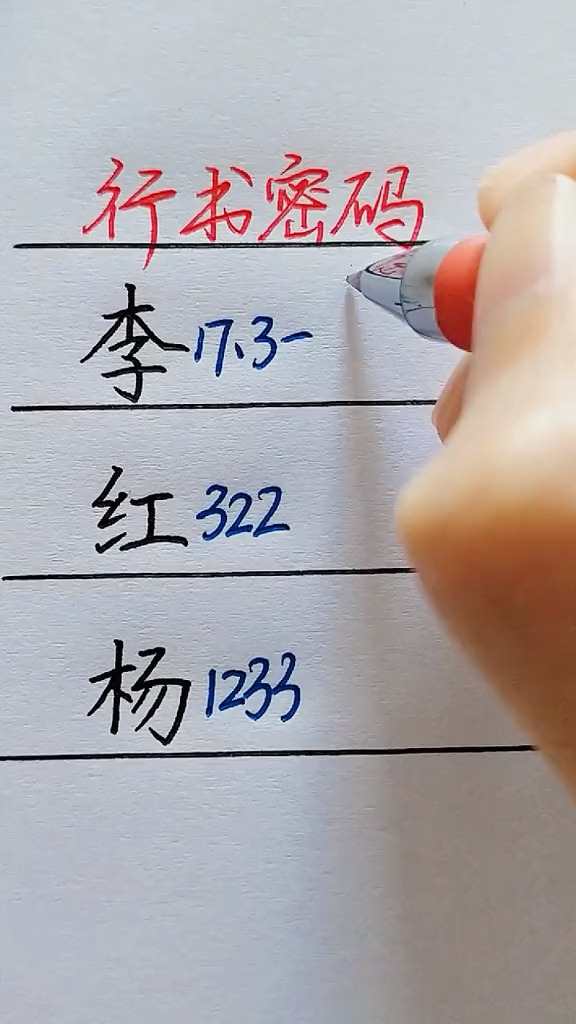 行书密码
李 17、3一
红 322
杨 1233